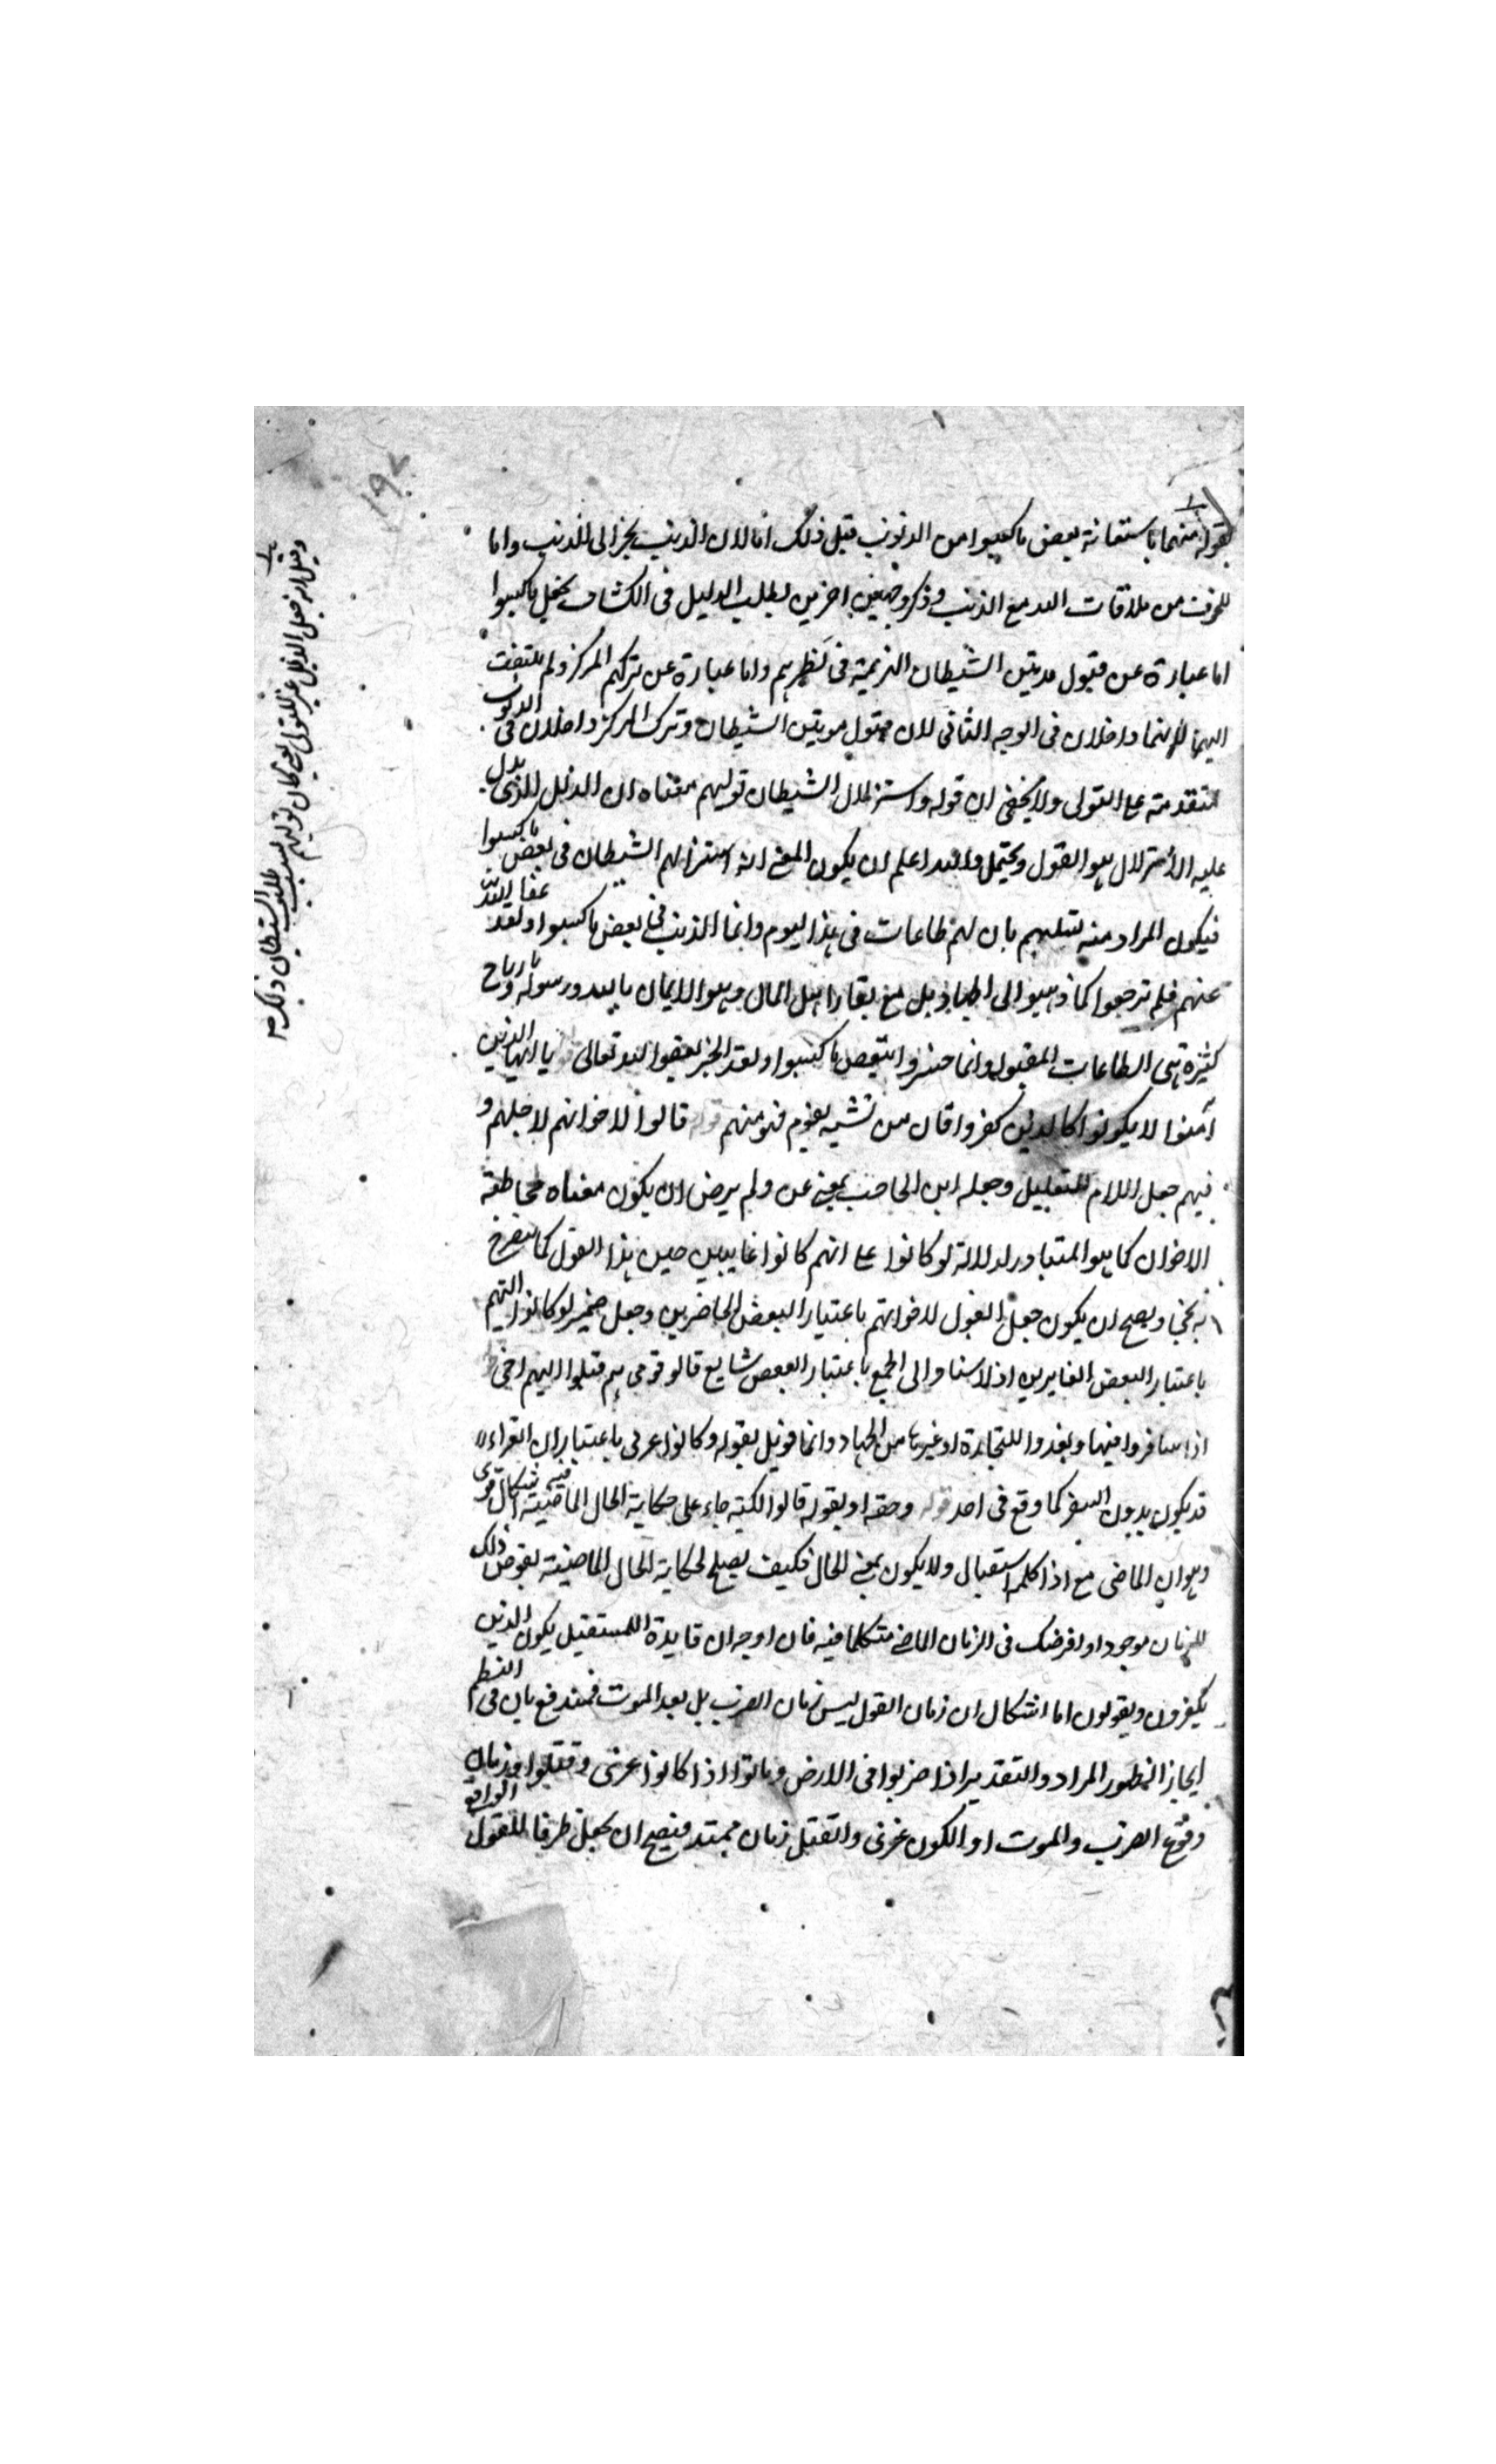 بقوله منهما باستعانة بعض ما كسبوا من الذنوب قبل ذلك اما لان الذنب يجر الى الذنب واما
للخوف من ملاقات الله مع الذنب وذكر وجهين اخرين لطلب الدليل فى الكشاف بجعل ما كسبوا
اما عبارة عن قبول مزين الشيطان الهزيمة فى نظرهم واما عبارة عن تركهم المركز ولم يلتفت
اليهما لانهما داخلان فى الوجه الثانى لان قبول مزين الشيطان وترك المركز داخلان فى الذنوب
المتقدمة على التولى ولا يخفى ان قوله واستزلال الشيطان توليهم معناه ان الدليل الذى يدل
عليه الاستزلال هو القول ويحتمل والله اعلم ان يكون المعنى انه استزلهم الشيطان فى بعض ما كسبوا
فيكون المراد منه تسليهم بان لهم طاعات فى هذا اليوم وانما الذنب فى بعض ما كسبوا ولقد عفا الله
عنهم فلم ترجعوا كما ذهبوا الى الجهاد بل مع بقاء اهل المال وهو الايمان بالله ورسوله وارباح
كثيرة هى الطاعات المقبولة وانما خسروا ببعض ما كسبوا ولقد انجبر بعفو الله تعالى قوله يا ايها الذين
آمنوا لا يكونوا كالذين كفروا فان من تشبه بقوم فهو منهم قوله قالوا لاخوانهم لاجلهم و
فيهم جعل اللام للتعليل وجعله ابن الحاجب بمعنى عن ولم يرض ان يكون معناه مخاطبة
الاخوان كما هو المتبادر لدلالة لو كانوا على انهم كانوا غايبين حين هذا القول كما
ويصح ان يكون جعل القول لاخوانهم باعتبار البعض الحاضرين وجعل ضمير لو كانوا اليهم
باعتبار البعض الغايبين اذ الاسناد الى الجمع باعتبار البعض شايع قالو قومى هم قتلوا اميم اخى
اذا سافروا فيها وبعدوا للتجارة او غيرها من الجهاد وانما قوبل بقوله وكانوا غزى باعتبار ان الغزاء
قد يكون بدون السفر كما وقع فى احد قوله وحقه اذ لقوله قالوا لكنه جاء على حكاية الحال الماضية فيه اشكال قوى
وهو ان الماضى مع اذا كلمة استقبال ولا يكون بمعنى الحال فكيف يصلح لحكاية الحال الماضية بفرض ذلك
الزمان موجودا او لفرضك فى الزمان الماضى متكلما فيه فان اوجه ان فايدة المستقبل يكون الذين
يكفرون ويقولون اما اشكال ان زمان القول ليس زمان الضرب بل بعد الموت فمندفع بان فى النظم
ايجاز المظهور المراد والتقدير اذا ضربوا فى الارض وماتوا او كانوا غزى وقتلوا وزمان
وقوع الضرب والموت او الكون غزى والقتل زمان ممتد فيصح ان يجعل ظرفا للقول الواقع
وقيل انه جعل الدليل غير التولى يعنى كان توليهم بسبب طلب الشيطان ذلك